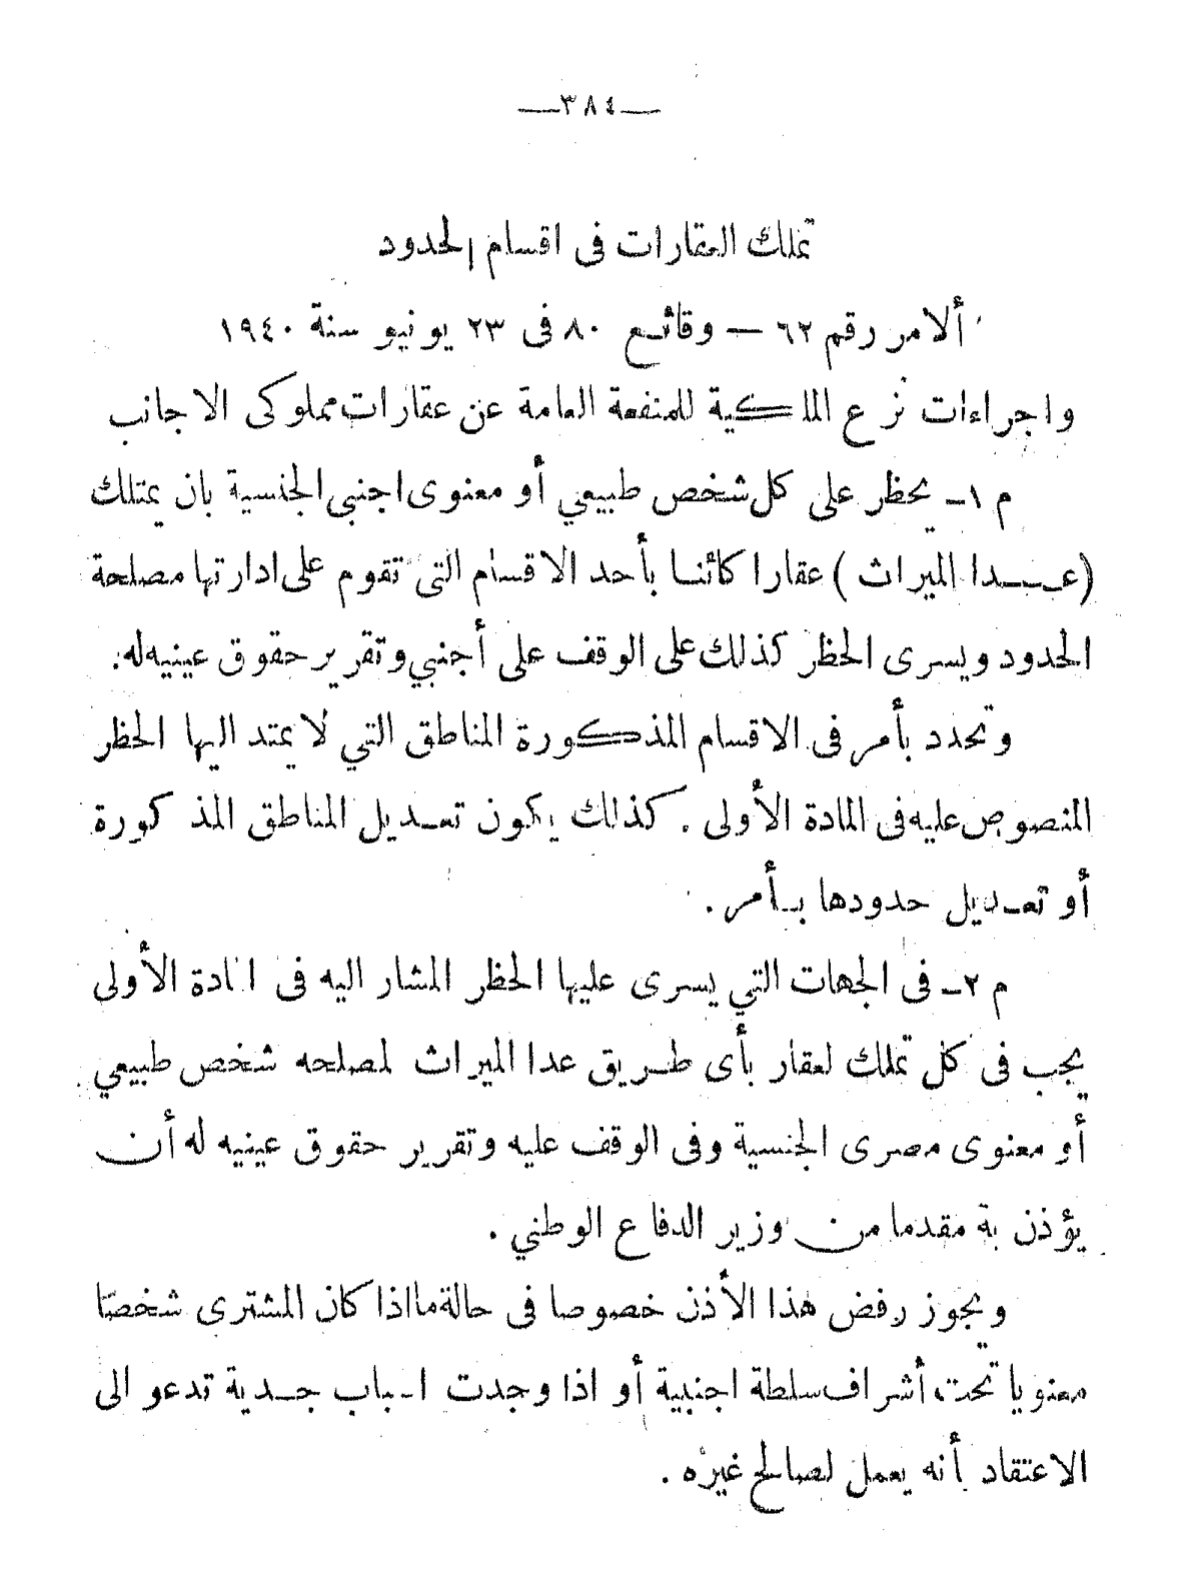 —٣٨٤—
تملك العقارات فى اقسام الحدود
ألامر رقم ٦٢ — وقائع ٨٠ فى ٢٣ يونيو سنة ١٩٤٠
واجراءات نزع الملكية للمنفعة العامة عن عقارات مملوكى الاجانب
م ١ـ يحظر على كل شخص طبيعي أو معنوى اجنبى الجنسية بان يمتلك
(عـــدا الميراث) عقارا كائنا بأحد الاقسام التى تقوم على ادارتها مصلحة
الحدود ويسرى الحظر كذلك على الوقف على أجنبي وتقرير حقوق عينيه له.
وتحدد بأمر فى الاقسام المذكورة المناطق التي لا يمتد اليها الحظر
المنصوص عليه فى المادة الأولى . كذلك يكون تعـديل المناطق المذكورة
أو تعـديل حدودها بـأمر .
م ٢ـ فى الجهات التي يسرى عليها الحظر المشار اليه فى المادة الأولى
يجب فى كل تملك لعقار بأى طـريق عدا الميراث لمصلحه شخص طبيعي
أو معنوى مصرى الجنسية وفى الوقف عليه وتقرير حقوق عينيه له أن
يؤذن بة مقدما من وزير الدفاع الوطني .
ويجوز رفض هذا الأذن خصوصا فى حالة مااذا كان المشترى شخصا
معنويا تحت أشراف سلطة اجنبية أو اذا وجدت اسباب جـدية تدعو الى
الاعتقاد بأنه يعمل لصالح غيره .